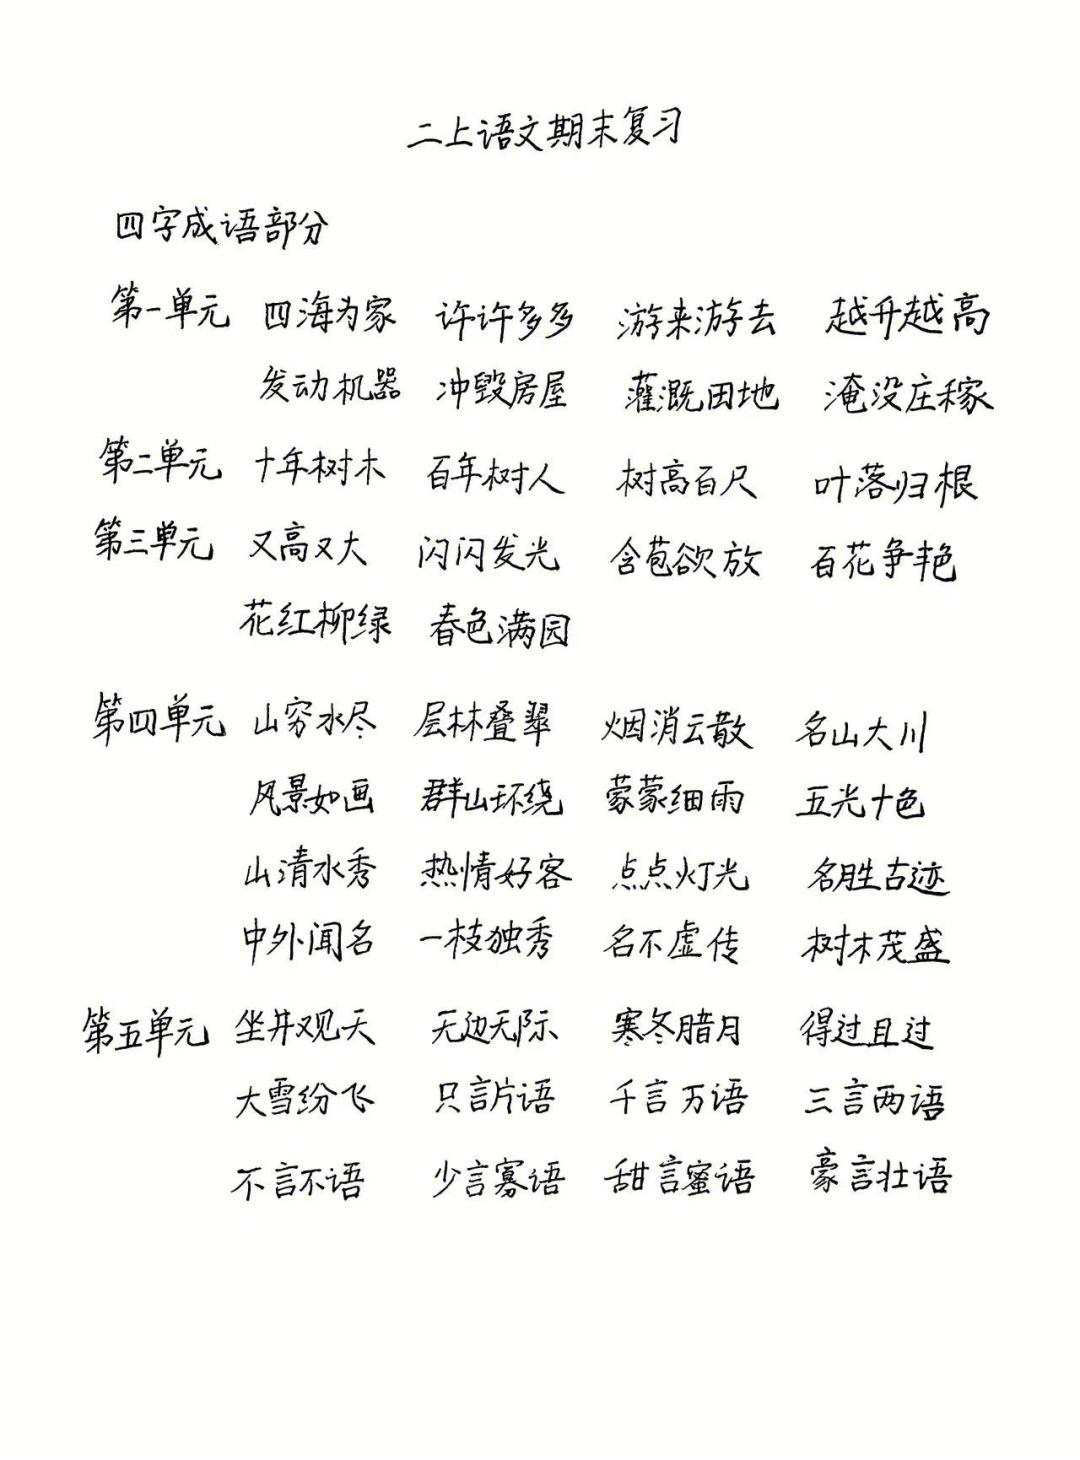 二上语文期末复习
四字成语部分
第一单元 四海为家 许许多多 游来游去 越升越高
发动机器 冲毁房屋 灌溉田地 淹没庄稼
第二单元 十年树木 百年树人 树高百尺 叶落归根
第三单元 又高又大 闪闪发光 含苞欲放 百花争艳
花红柳绿 春色满园
第四单元 山穷水尽 层林叠翠 烟消云散 名山大川
风景如画 群山环绕 蒙蒙细雨 五光十色
山清水秀 热情好客 点点灯光 名胜古迹
中外闻名 一枝独秀 名不虚传 树木茂盛
第五单元 坐井观天 无边无际 寒冬腊月 得过且过
大雪纷飞 只言片语 千言万语 三言两语
不言不语 少言寡语 甜言蜜语 豪言壮语